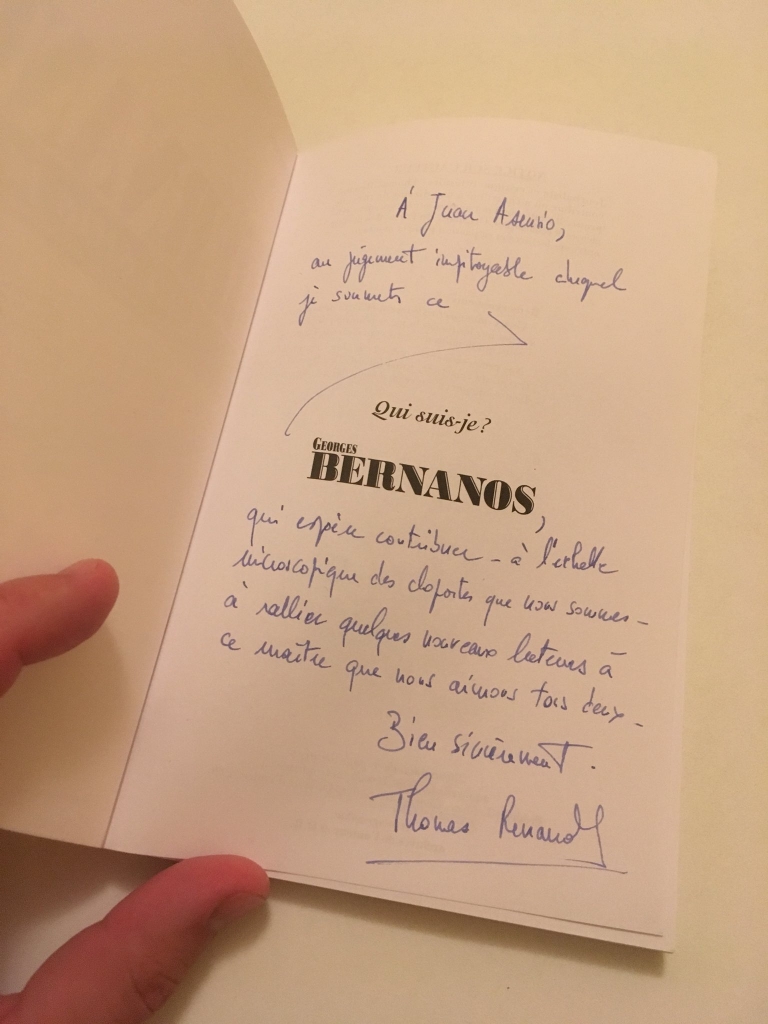 À Juan Asensio,
au jugement impitoyable duquel
je soumets ce
Qui suis-je?
GEORGES
BERNANOS,
qui espère contribuer - à l'échelle
microscopique des cloportes que nous sommes -
à rallier quelques nouveaux lecteurs à
ce maître que nous aimons tous deux.
Bien sincèrement.
Thomas Renaud